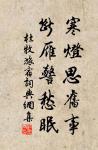 寒燈思舊事
斷雁警愁眠
杜牧旅宿詞典網集